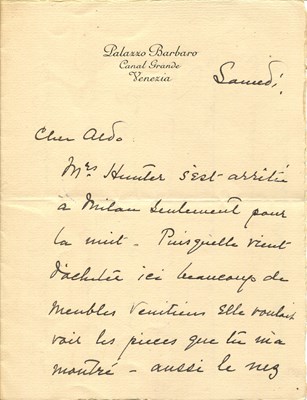 Palazzo Barbaro
Canal Grande
Venezia
Samedi
Cher Aldo
Mrs Hunter s'est arrêtée
à Milan seulement pour
la nuit - Puisqu'elle vient
d'acheter ici beaucoup de
meubles Venitiens Elle voulait
voir les pieces que tu m'a
montré - aussi le nez